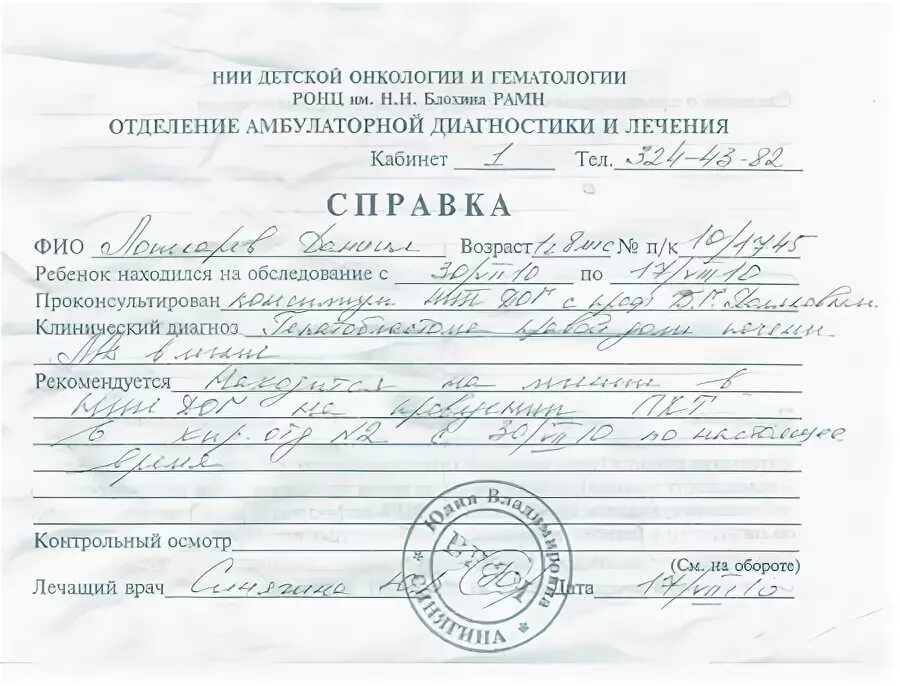 НИИ ДЕТСКОЙ ОНКОЛОГИИ И ГЕМАТОЛОГИИ
РОНЦ им. Н.Н. Блохина РАМН
ОТДЕЛЕНИЕ АМБУЛАТОРНОЙ ДИАГНОСТИКИ И ЛЕЧЕНИЯ
Кабинет 1 Тел. 324-43-82
СПРАВКА
ФИО Даниил Возраст 1г 8 мес № п/к 10/1745
Ребенок находился на обследование с 30/VII 10 по 17/VIII 10
Проконсультирован консилиум НИИ ДОГ с проф
Клинический диагноз Гепатобластома правой доли печени
в
Рекомендуется Находится на лечении в
НИИ ДОГ на ПХТ
в хир. отд №2 с 30/VII 10 по настоящее
время
Контрольный осмотр
(См. на обороте)
Лечащий врач Синягина Дата 17/VIII 10
Юлия Владимировна
СИНЯГИНА
ВРАЧ